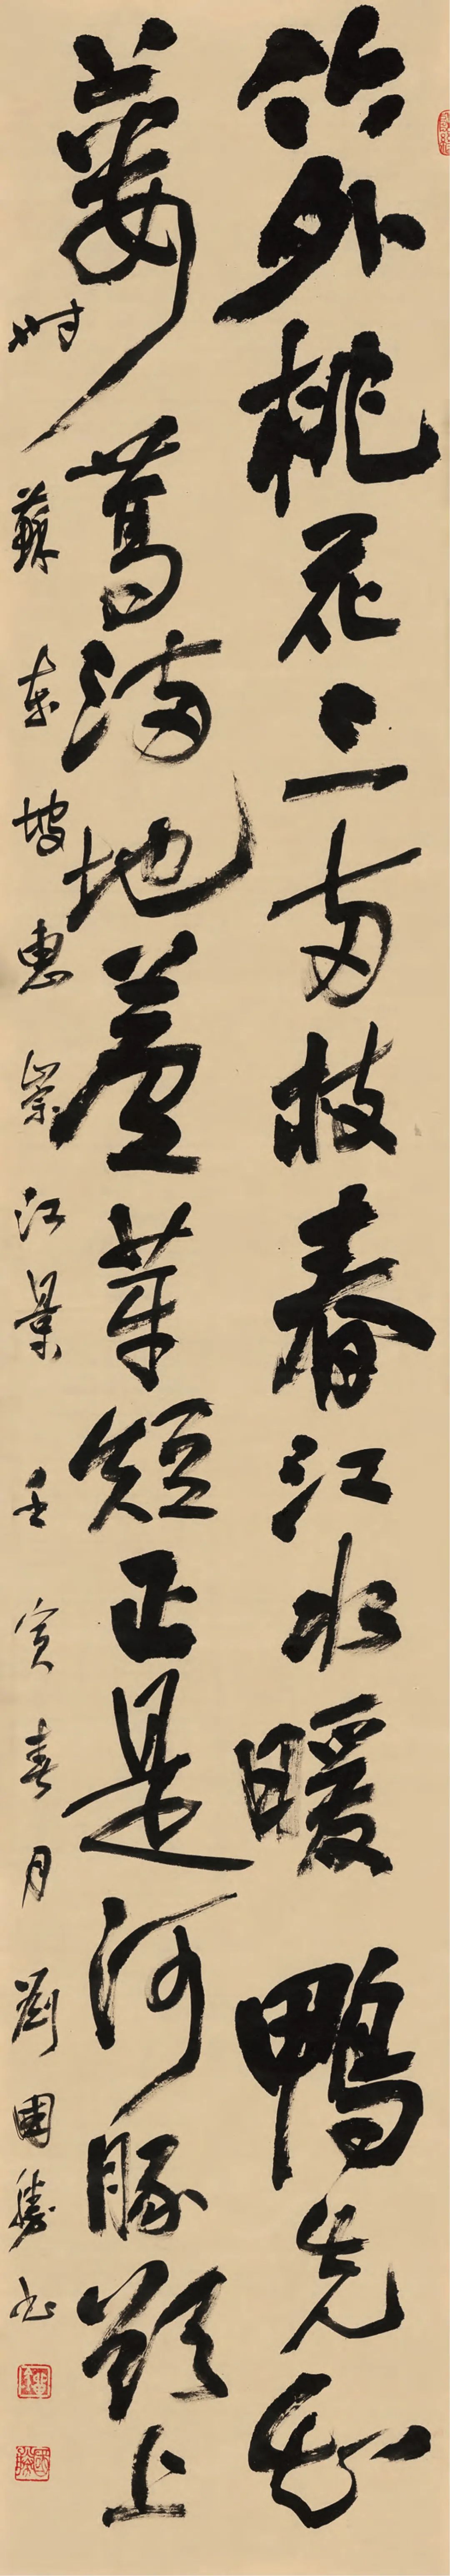 竹外桃花三两枝春江水暖鸭先知
蒌蒿满地芦芽短正是河豚欲上
时 苏东坡惠崇江景 壬寅春月刘国胜书